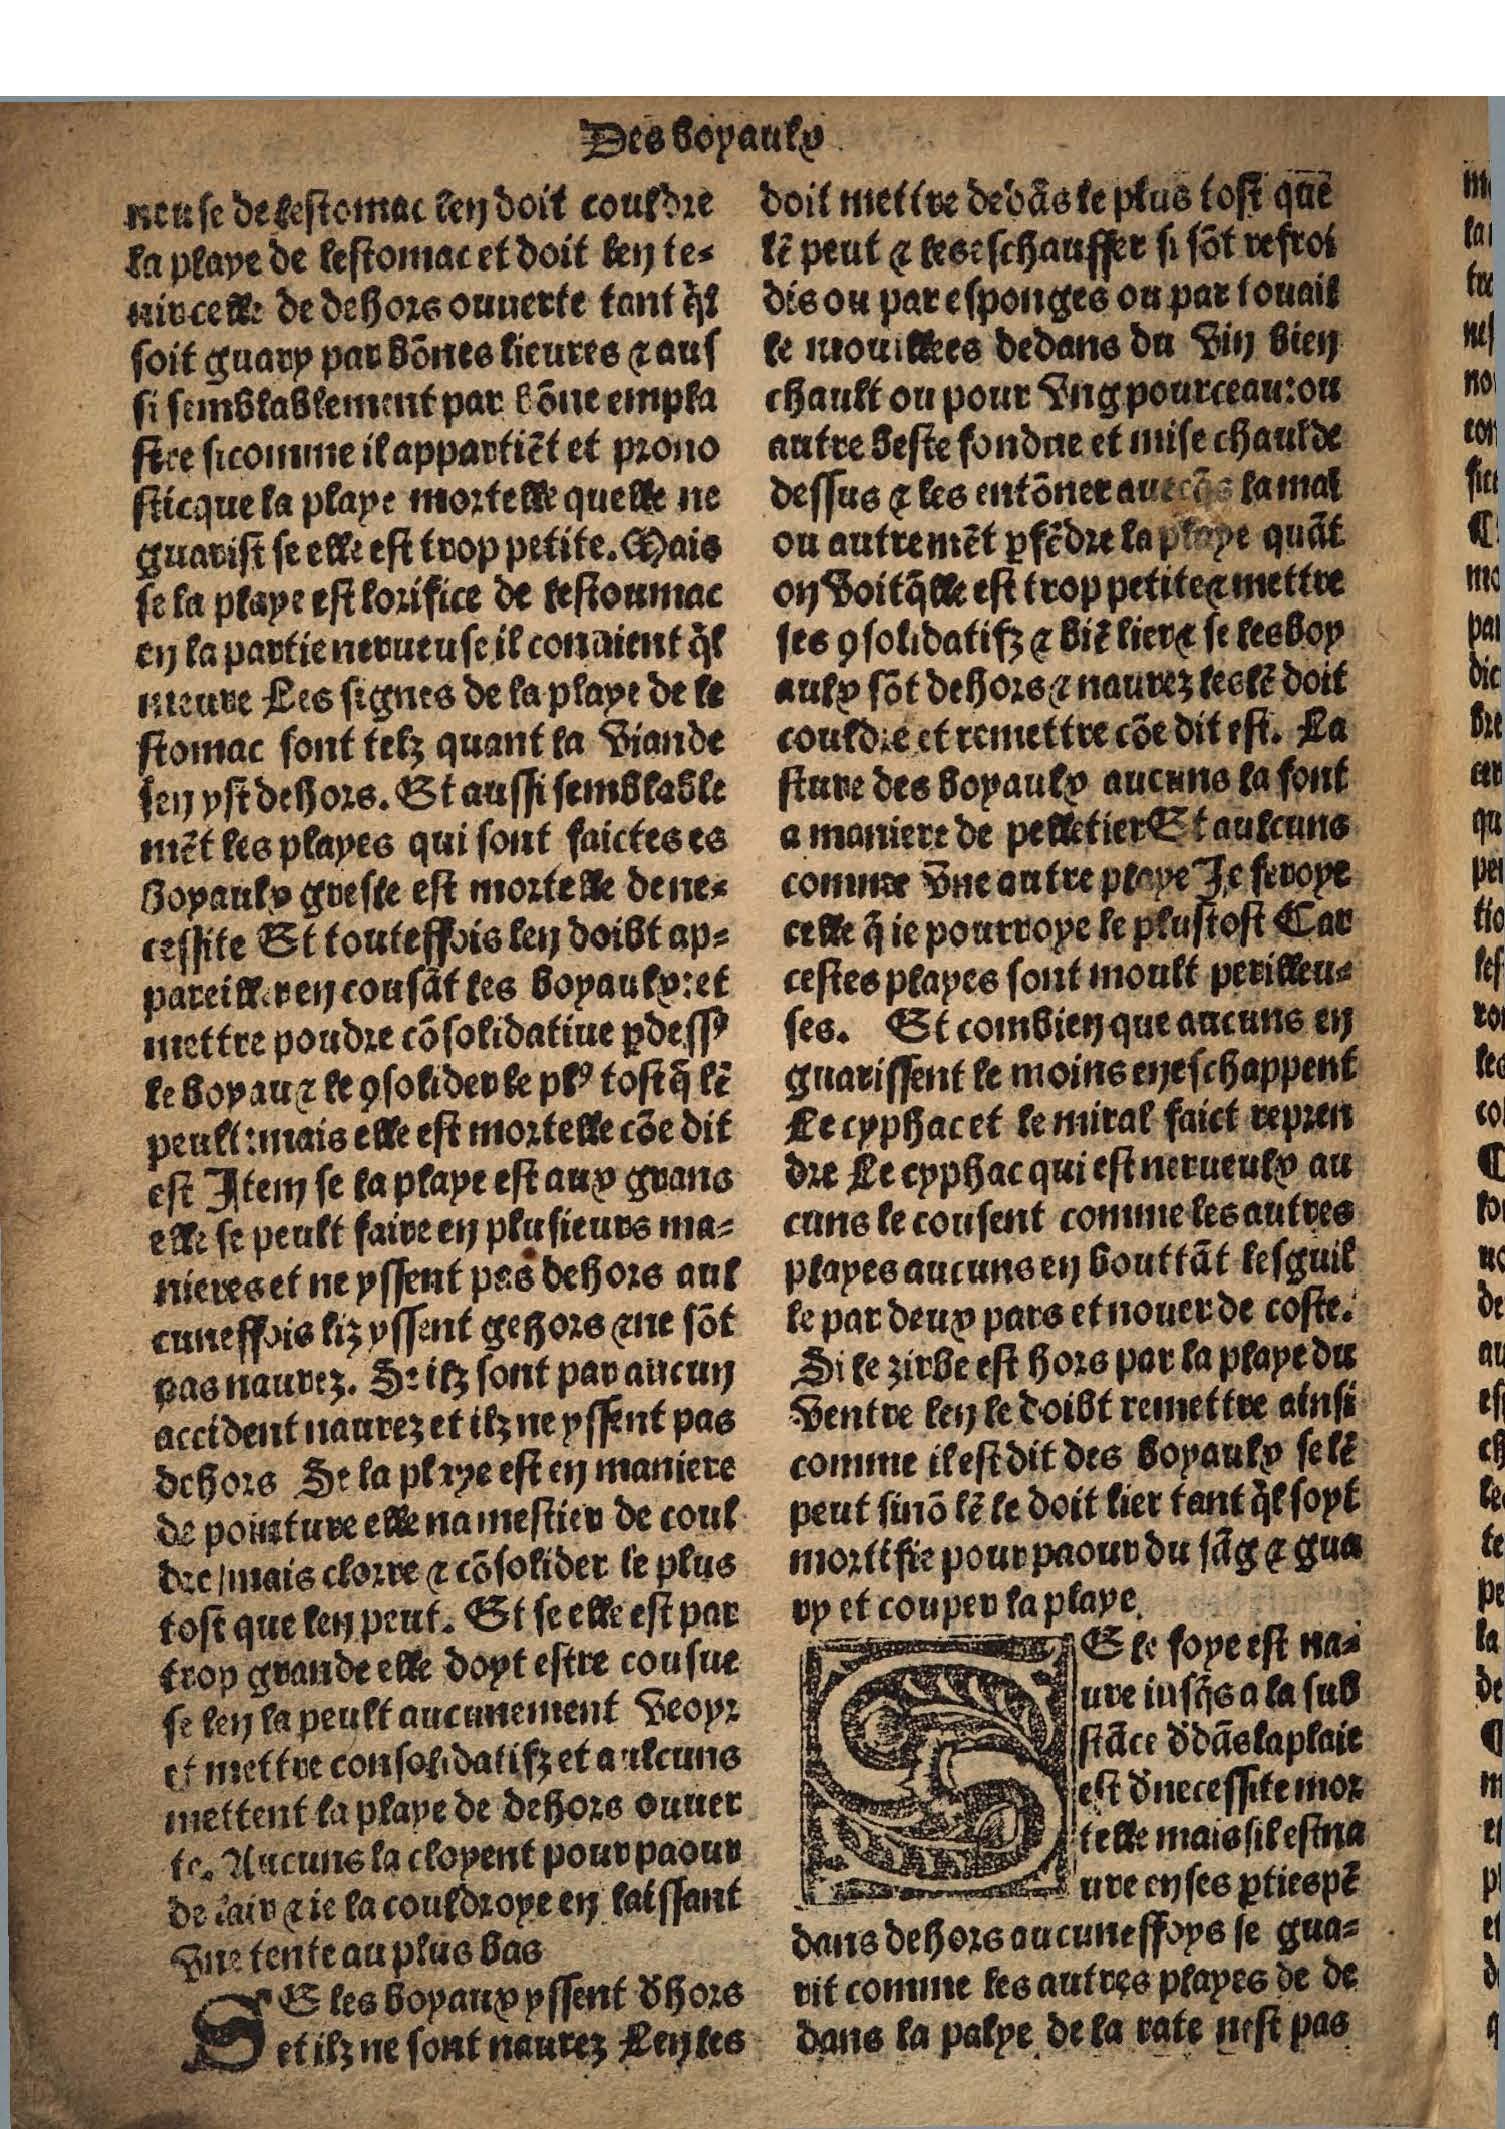 Des boyaulx
neuse de lestomac len doit couldre
la playe de lestomac et doit len te-
nir celle de dehors ouuerte tant q̃l
soit guary par bõnes lieures ⁊ aus
si semblablement par bõne empla
stre sicomme il appartiẽt et prono
sticque la playe mortelle quelle ne
guarist se elle est trop petite. Mais
se la playe est lorifice de lestoumac
en la partie nerueuse il conuient q̃l
meure Les signes de la playe de le
stomac sont telz quant la viande
sen yst dehors. Et aussi semblable
mẽt les playes qui sont faictes es
boyaulx gresle est mortelle de ne-
cessite Et touteffois len doibt ap-
pareiller en cousãt les boyaulx: et
mettre poudre cõsolidatiue ꝑdessꝰ
le boyau ⁊ le ꝯsolider le plꝰ tost q̃ lẽ
peult: mais elle est mortelle cõe dit
est Item se la playe est aux grans
elle se peult faire en plusieurs ma-
nieres et ne yssent pas dehors aul
cuneffois liz yssent gehors ⁊ ne sõt
pas naurez. Se ilz sont par aucun
accident naurez et ilz ne yssent pas
dehors Se la playe est en maniere
de pointure elle na mestier de coul
dre / mais clorre ⁊ cõsolider le plus
tost que len peut. Et se elle est par
trop grande elle doyt estre cousue
se len la peult aucunement veoyr
et mettre consolidatifz et aulcuns
mettent la playe de dehors ouuer
te. Aucuns la cloyent pour paour
de lair ⁊ ie la couldroye en laissant
vne tente au plus bas
SE les boyaux yssent d̃hors
et ilz ne sont naurez Len les
doit mettre dedãs le plus tost que
lẽ peut ⁊ les eschauffer si sõt refroi
dis ou par esponges ou par touail
le mouillees dedans du vin bien
chault ou pour vng pourceau: ou
autre beste fondue et mise chaulde
dessus ⁊ les entõner auecq̃s la mal
ou autremẽt ꝑfẽdre la playe quãt
on voit q̃lle est trop petite ⁊ mettre
ses ꝯsolidatifz ⁊ biẽ lier ⁊ se les boy
aulx sõt dehors ⁊ naurez les lẽ doit
couldre et remettre cõe dit est. La
sture des boyaulx aucuns la font
a maniere de pelletier Et aulcuns
comme vne autre playe Je feroye
celle q̃ ie pourroye le plustost Car
cestes playes sont moult perilleu-
ses. Et combien que aucuns en
guarissent le moins en eschappent
Le cyphac et le miral faict repren
dre Le cyphac qui est nerueulx au
cuns le cousent comme les autres
playes aucuns en bouttãt lesguil
le par deux pars et nouer de coste.
Si le zirbe est hors par la playe du
ventre len le doibt remettre ainsi
comme il est dit des boyaulx se lẽ
peut sinõ lẽ le doit lier tant q̃l soyt
mortifie pour paour du sãg ⁊ gua
ry et couper la playe.
SE le foye est na-
ure iusq̃s a la sub
stãce d̃dãs la plaie
est d̃ necessite mor
telle mais sil est na
ure en ses ꝑties pẽ
dans dehors aucuneffoys se gua-
rit comme les autres playes de de
dans la palye de la rate nest pas